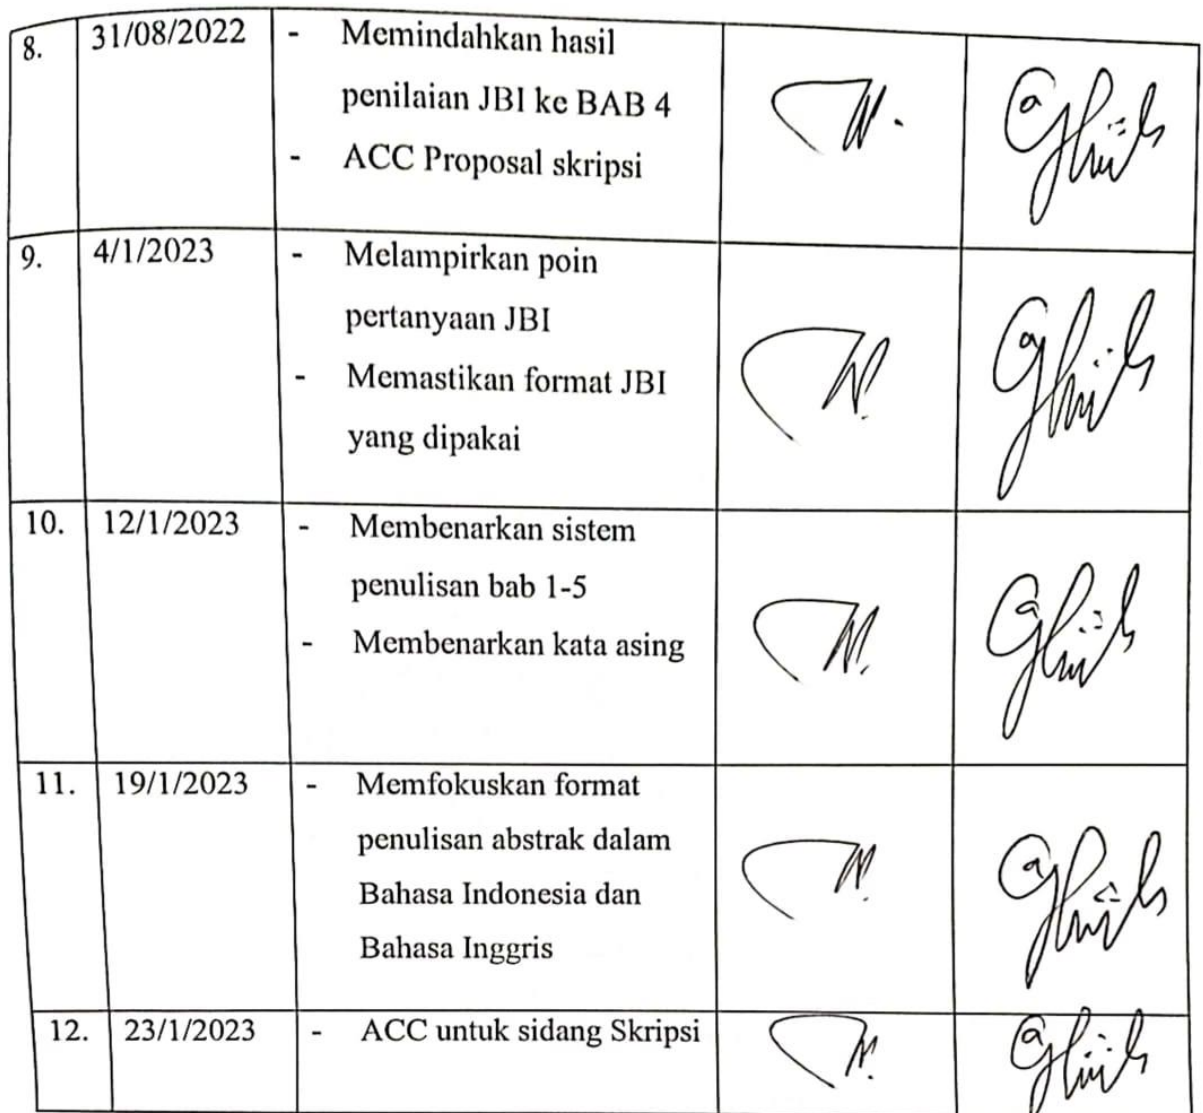 8. 31/08/2022 - Memindahkan hasil
penilaian JBI ke BAB 4
- ACC Proposal skripsi
9. 4/1/2023 - Melampirkan poin
pertanyaan JBI
- Memastikan format JBI
yang dipakai
10. 12/1/2023 - Membenarkan sistem
penulisan bab 1-5
- Membenarkan kata asing
11. 19/1/2023 - Memfokuskan format
penulisan abstrak dalam
Bahasa Indonesia dan
Bahasa Inggris
12. 23/1/2023 - ACC untuk sidang Skripsi